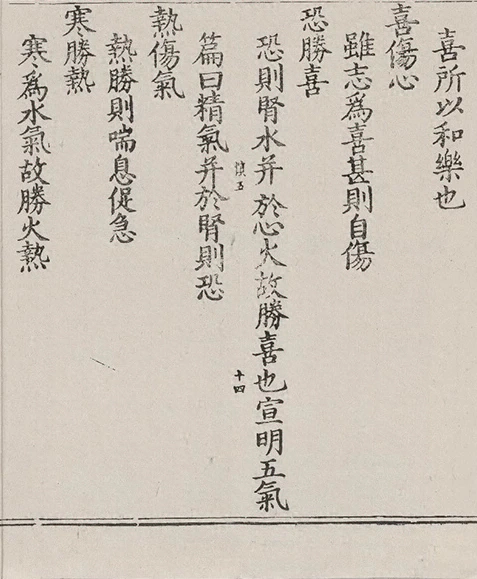 喜所以和樂也
喜傷心
雖志爲喜甚則自傷
恐勝喜
恐則腎水并於心火故勝喜也宣明五氣
十四
篇曰精氣并於腎則恐
熱傷氣
熱勝則喘息促急
寒勝熱
寒爲水氣故勝火熱